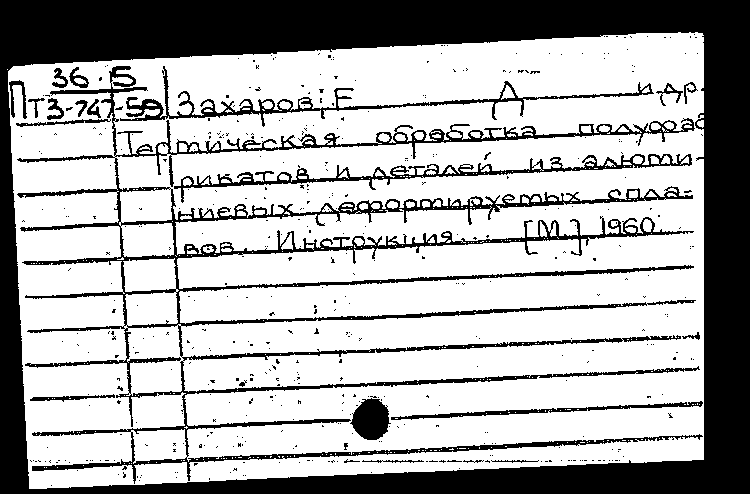 36.5
ПТ3-747-59 Захаров, Е Д и др.
Термическая обработка полуфаб
рикатов и деталей из алюми-
ниевых деформируемых спла-
вов. Инструкция... [М.], 1960.